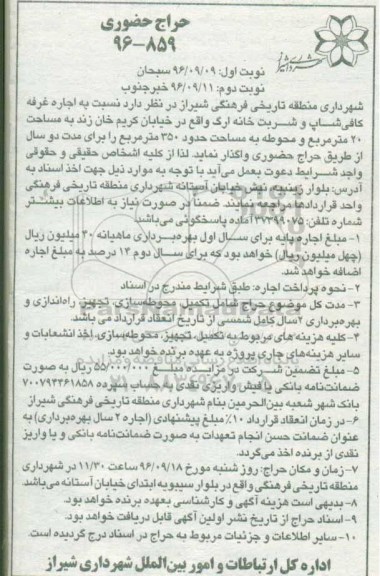 حراج حضوری
۹۶-۸۵۹
نوبت اول: ۹۶/۰۹/۰۹ سبحان
نوبت دوم: ۹۶/۰۹/۱۱ خبرجنوب
شهرداری منطقه تاریخی فرهنگی شیراز در نظر دارد نسبت به اجاره غرفه
کافی‌شاپ و شربت خانه ارگ واقع در خیابان کریم خان زند به مساحت
۲۰ مترمربع و محوطه به مساحت حدود ۳۵۰ مترمربع را برای مدت دو سال
از طریق حراج حضوری واگذار نماید. لذا از کلیه اشخاص حقیقی و حقوقی
واجد شرایط دعوت بعمل می‌آید با توجه به موارد ذیل جهت اخذ اسناد به
آدرس: بلوار زینبیه نبش خیابان آستانه شهرداری منطقه تاریخی فرهنگی
واحد قراردادها مراجعه نمایند. ضمناً در صورت نیاز به اطلاعات بیشتر
شماره تلفن: ۳۷۳۹۹۰۷۵ آماده پاسخگوئی می‌باشد.
۱- مبلغ اجاره پایه برای سال اول بهره‌برداری ماهیانه ۴۰ میلیون ریال
(چهل میلیون ریال) خواهد بود که برای سال دوم ۱۲ درصد به مبلغ اجاره
اضافه خواهد شد.
۲- نحوه پرداخت اجاره: طبق شرایط مندرج در اسناد
۳- مدت کل موضوع حراج شامل تکمیل، محوطه‌سازی، تجهیز، راه‌اندازی و
بهره‌برداری ۲سال کامل شمسی از تاریخ انعقاد قرارداد می باشد.
۴- کلیه هزینه‌های مربوط به تکمیل، تجهیز، محوطه‌سازی، اخذ انشعابات و
سایر هزینه‌های جاری پروژه به عهده برنده خواهد بود.
۵- مبلغ تضمین شرکت در مزایده مبلغ ۵۵/۰۰۰/۰۰۰ ریال به صورت
ضمانت‌نامه بانکی یا فیش واریزی نقدی به حساب سپرده ۷۰۰۷۹۳۲۶۱۸۵۸
بانک شهر شعبه بین‌الحرمین بنام شهرداری منطقه تاریخی فرهنگی شیراز
۶- در زمان انعقاد قرارداد ۱۰٪ مبلغ پیشنهادی (اجاره ۲ سال بهره‌برداری) به
عنوان ضمانت حسن انجام تعهدات به صورت ضمانت‌نامه بانکی و یا واریز
نقدی از برنده اخذ می‌گردد.
۷- زمان و مکان حراج: روز شنبه مورخ ۹۶/۰۹/۱۸ ساعت ۱۱/۳۰ در شهرداری
منطقه تاریخی فرهنگی واقع در بلوار سیبویه ابتدای خیابان آستانه می‌باشد.
۸- بدیهی است هزینه آگهی و کارشناسی بعهده برنده خواهد بود.
۹- اسناد حراج از تاریخ نشر اولین آگهی قابل دریافت خواهد بود.
۱۰- سایر اطلاعات و جزئیات مربوط به حراج در اسناد درج گردیده است.
اداره کل ارتباطات و امور بین‌الملل شهرداری شیراز